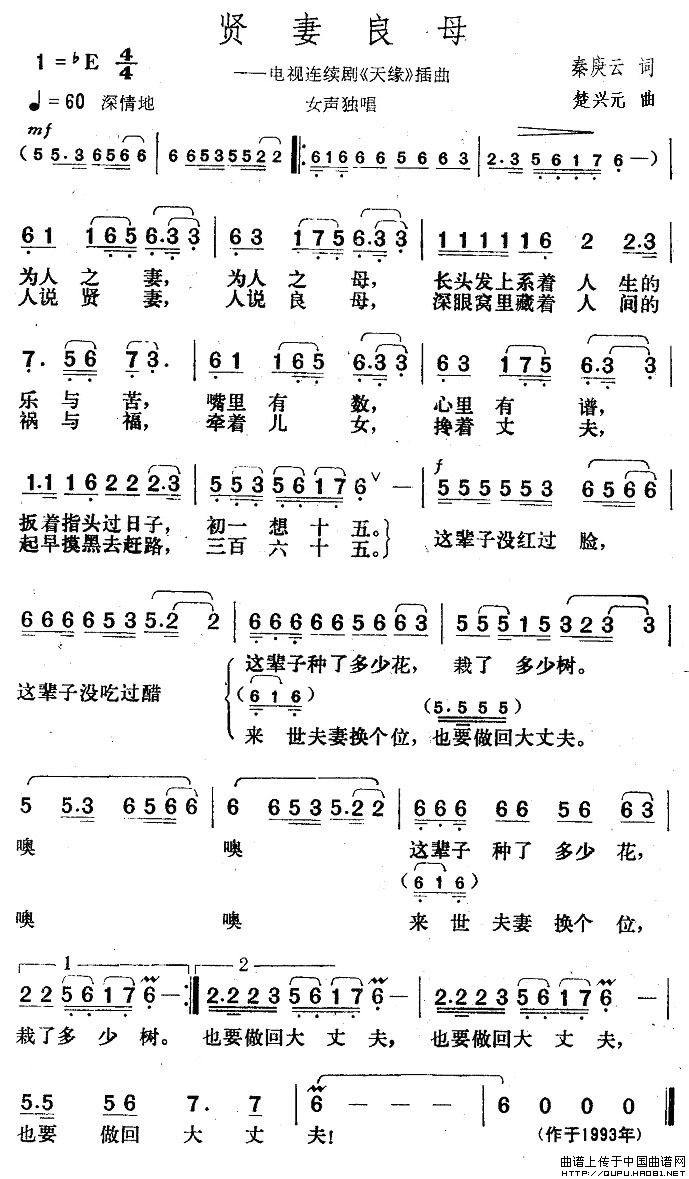 贤妻良母
1=♭E 4/4
——电视连续剧《天缘》插曲
秦庚云 词
♩=60 深情地
女声独唱
楚兴元 曲
mf
(5 5.3 6566 | 6 6535 5522 |: 6166 6 5 6 6 3 | 2.3 5617 6 —)
61 165 6.33 | 63 175 6.33 | 11111 16 2 2.3
为人之妻, 为人之母, 长头发上系着人生的
人说贤妻, 人说良母, 深眼窝里藏着人间的
7. 56 73. | 61 165 6.33 | 63 175 6.3 3
乐与苦, 嘴里有数, 心里有谱,
祸与福, 牵着儿女, 搀着丈夫,
1.1 16 22 2.3 | 553 5617 6 ∨ — | f 555553 6566
扳着指头过日子, 初一想十五。 这辈子没红过脸,
起早摸黑去赶路, 三百六十五。
6666535.2 2 | 6666656663 | 5551532 3 3
这辈子种了多少花, 栽了多少树。
这辈子没吃过醋 (616) (5.555)
来世夫妻换个位, 也要做回大丈夫。
5 5.3 6566 | 6 6535.22 | 666 66 56 63
噢 噢 这辈子种了多少花,
(616)
噢 噢 来世夫妻换个位,
1 2
22 5617 6 — :| 2.223 5617 6 — | 2.223 5617 6 —
栽了多少树。 也要做回大丈夫, 也要做回大丈夫,
5.5 56 7. 7 | 6 — — — | 6 0 0 0
也要做回大丈夫! (作于1993年)
曲谱上传于中国曲谱网
http://QUPU.HAO81.NET